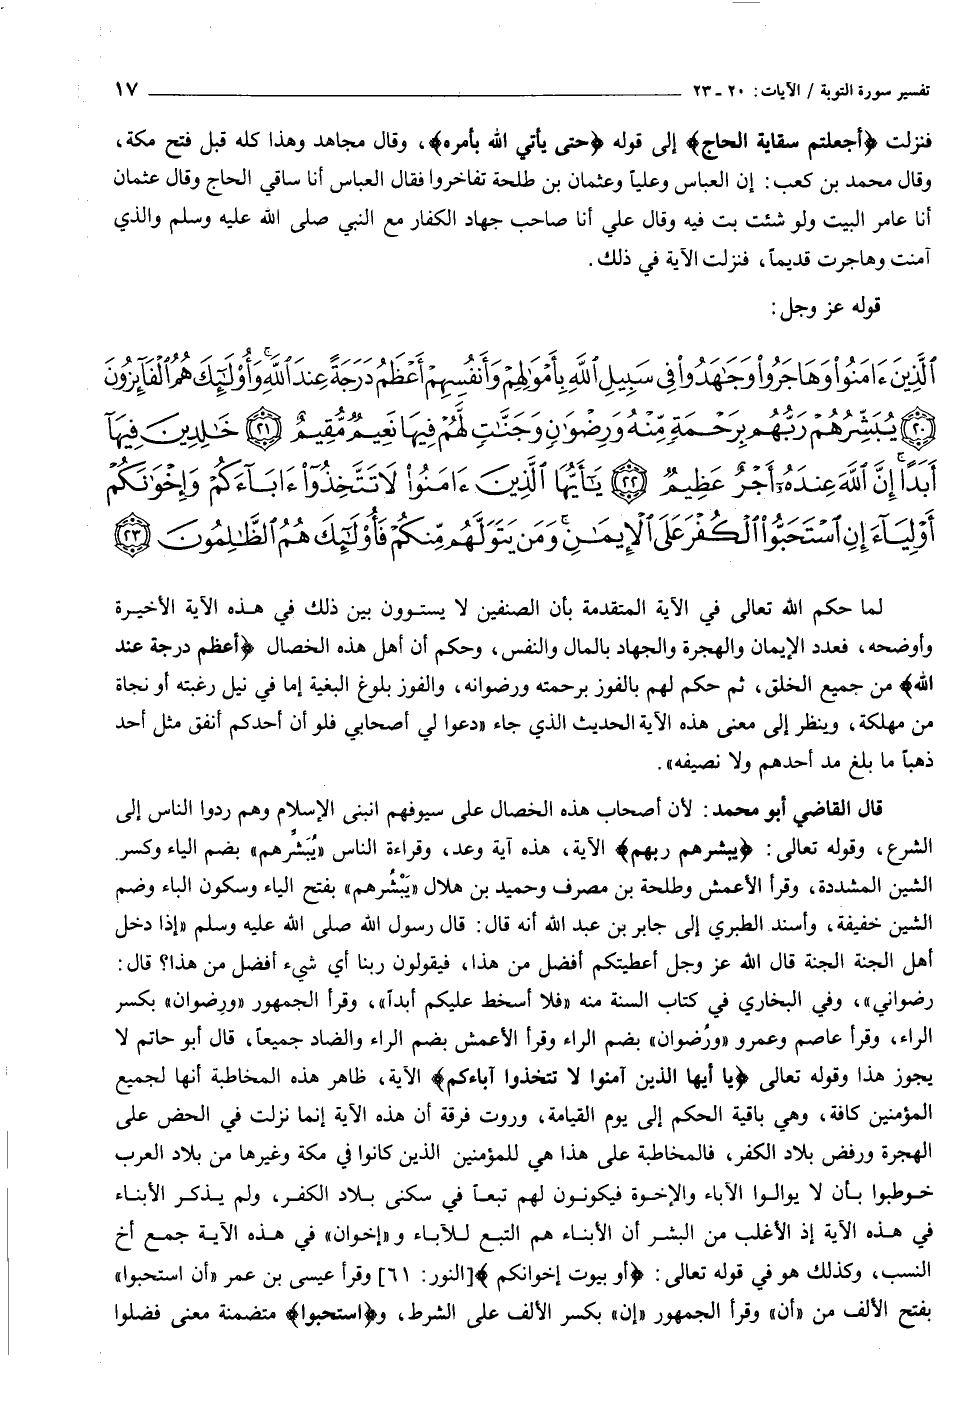 تفسير سورة التوبة / الآيات: ٢٠ ـ ٢٣ ١٧
فنزلت ﴿أجعلتم سقاية الحاج﴾ إلى قوله ﴿حتى يأتي الله بأمره﴾، وقال مجاهد وهذا كله قبل فتح مكة،
وقال محمد بن كعب: إن العباس وعلياً وعثمان بن طلحة تفاخروا فقال العباس أنا ساقي الحاج وقال عثمان
أنا عامر البيت ولو شئت بت فيه وقال علي أنا صاحب جهاد الكفار مع النبي صلى الله عليه وسلم والذي
آمنت وهاجرت قديماً، فنزلت الآية في ذلك.
قوله عز وجل:
ٱلَّذِينَ ءَامَنُوا۟ وَهَاجَرُوا۟ وَجَٰهَدُوا۟ فِى سَبِيلِ ٱللَّهِ بِأَمْوَٰلِهِمْ وَأَنفُسِهِمْ أَعْظَمُ دَرَجَةً عِندَ ٱللَّهِ ۚ وَأُو۟لَٰٓئِكَ هُمُ ٱلْفَآئِزُونَ
﴿٢٠﴾ يُبَشِّرُهُمْ رَبُّهُم بِرَحْمَةٍ مِّنْهُ وَرِضْوَٰنٍ وَجَنَّٰتٍ لَّهُمْ فِيهَا نَعِيمٌ مُّقِيمٌ ﴿٢١﴾ خَٰلِدِينَ فِيهَآ
أَبَدًا ۚ إِنَّ ٱللَّهَ عِندَهُۥٓ أَجْرٌ عَظِيمٌ ﴿٢٢﴾ يَٰٓأَيُّهَا ٱلَّذِينَ ءَامَنُوا۟ لَا تَتَّخِذُوٓا۟ ءَابَآءَكُمْ وَإِخْوَٰنَكُمْ
أَوْلِيَآءَ إِنِ ٱسْتَحَبُّوا۟ ٱلْكُفْرَ عَلَى ٱلْإِيمَٰنِ ۚ وَمَن يَتَوَلَّهُم مِّنكُمْ فَأُو۟لَٰٓئِكَ هُمُ ٱلظَّٰلِمُونَ ﴿٢٣﴾
لما حكم الله تعالى في الآية المتقدمة بأن الصنفين لا يستوون بين ذلك في هذه الآية الأخيرة
وأوضحه، فعدد الإيمان والهجرة والجهاد بالمال والنفس، وحكم أن أهل هذه الخصال ﴿أعظم درجة عند
الله﴾ من جميع الخلق، ثم حكم لهم بالفوز برحمته ورضوانه، والفوز بلوغ البغية إما في نيل رغبته أو نجاة
من مهلكة، وينظر إلى معنى هذه الآية الحديث الذي جاء «دعوا لي أصحابي فلو أن أحدكم أنفق مثل أحد
ذهباً ما بلغ مد أحدهم ولا نصيفه».
قال القاضي أبو محمد: لأن أصحاب هذه الخصال على سيوفهم انبنى الإسلام وهم ردوا الناس إلى
الشرع، وقوله تعالى: ﴿يبشرهم ربهم﴾ الآية، هذه آية وعد، وقراءة الناس «يُبَشِّرهم» بضم الياء وكسر
الشين المشددة، وقرأ الأعمش وطلحة بن مصرف وحميد بن هلال «يَبْشُرهم» بفتح الياء وسكون الباء وضم
الشين خفيفة، وأسند الطبري إلى جابر بن عبد الله أنه قال: قال رسول الله صلى الله عليه وسلم «إذا دخل
أهل الجنة الجنة قال الله عز وجل أعطيتكم أفضل من هذا، فيقولون ربنا أي شيء أفضل من هذا؟ قال:
رضواني»، وفي البخاري في كتاب السنة منه «فلا أسخط عليكم أبداً»، وقرأ الجمهور «ورِضوان» بكسر
الراء، وقرأ عاصم وعمرو «ورُضوان» بضم الراء وقرأ الأعمش بضم الراء والضاد جميعاً، قال أبو حاتم لا
يجوز هذا وقوله تعالى ﴿يا أيها الذين آمنوا لا تتخذوا آباءكم﴾ الآية، ظاهر هذه المخاطبة أنها لجميع
المؤمنين كافة، وهي باقية الحكم إلى يوم القيامة، وروت فرقة أن هذه الآية إنما نزلت في الحض على
الهجرة ورفض بلاد الكفر، فالمخاطبة على هذا هي للمؤمنين الذين كانوا في مكة وغيرها من بلاد العرب
خوطبوا بأن لا يوالوا الآباء والإخوة فيكونون لهم تبعاً في سكنى بلاد الكفر، ولم يذكر الأبناء
في هذه الآية إذ الأغلب من البشر أن الأبناء هم التبع للآباء و«إخوان» في هذه الآية جمع أخ
النسب، وكذلك هو في قوله تعالى: ﴿أو بيوت إخوانكم﴾[النور: ٦١] وقرأ عيسى بن عمر «أن استحبوا»
بفتح الألف من «أن» وقرأ الجمهور «إن» بكسر الألف على الشرط، و﴿استحبوا﴾ متضمنة معنى فضلوا